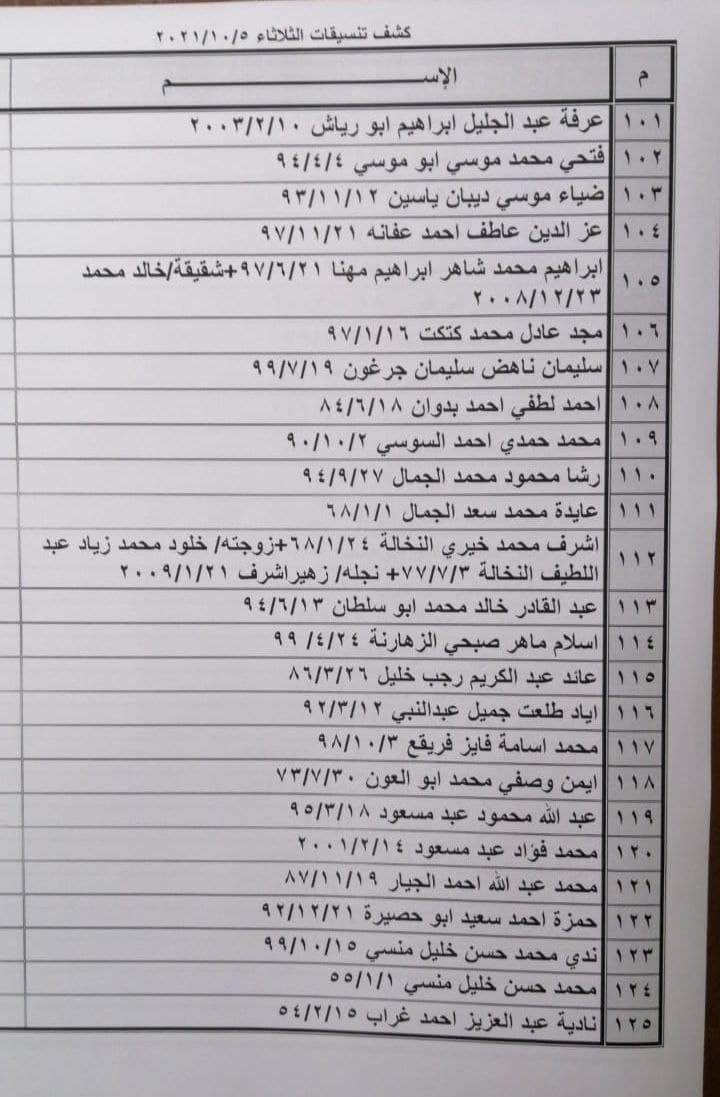 كشف تنسيقات الثلاثاء ٢٠٢١/١٠/٥
م الإســـــــــم
١٠١ عرفة عبد الجليل ابراهيم ابو رياش ٢٠٠٣/٢/١٠
١٠٢ فتحي محمد موسي ابو موسي ٩٤/٤/٤
١٠٣ ضياء موسي ديبان ياسين ٩٣/١١/١٢
١٠٤ عز الدين عاطف احمد عفانه ٩٧/١١/٢١
١٠٥ ابراهيم محمد شاهر ابراهيم مهنا ٩٧/٦/٢١+شقيقة/خالد محمد
٢٠٠٨/١٢/٢٣
١٠٦ مجد عادل محمد كتكت ٩٧/١/١٦
١٠٧ سليمان ناهض سليمان جرغون ٩٩/٧/١٩
١٠٨ احمد لطفي احمد بدوان ٨٤/٦/١٨
١٠٩ محمد حمدي احمد السوسي ٩٠/١٠/٢
١١٠ رشا محمود محمد الجمال ٩٤/٩/٢٧
١١١ عايدة محمد سعد الجمال ٦٨/١/١
١١٢ اشرف محمد خيري النخالة ٦٨/١/٢٤+زوجته/ خلود محمد زياد عبد
اللطيف النخالة ٧٧/٧/٣+ نجله/ زهيراشرف ٢٠٠٩/١/٢١
١١٣ عبد القادر خالد محمد ابو سلطان ٩٤/٦/١٣
١١٤ اسلام ماهر صبحي الزهارنة ٩٩/٤/٢٤
١١٥ عائد عبد الكريم رجب خليل ٨٦/٣/٢٦
١١٦ اياد طلعت جميل عبدالنبي ٩٢/٣/١٢
١١٧ محمد اسامة فايز فريقع ٩٨/١٠/٣
١١٨ ايمن وصفي محمد ابو العون ٧٣/٧/٣٠
١١٩ عبد الله محمود عبد مسعود ٩٥/٣/١٨
١٢٠ محمد فؤاد عبد مسعود ٢٠٠١/٢/١٤
١٢١ محمد عبد الله احمد الجيار ٨٧/١١/١٩
١٢٢ حمزة احمد سعيد ابو حصيرة ٩٢/١٢/٢١
١٢٣ ندي محمد حسن خليل منسي ٩٩/١٠/١٥
١٢٤ محمد حسن خليل منسي ٥٥/١/١
١٢٥ نادية عبد العزيز احمد غراب ٥٤/٢/١٥